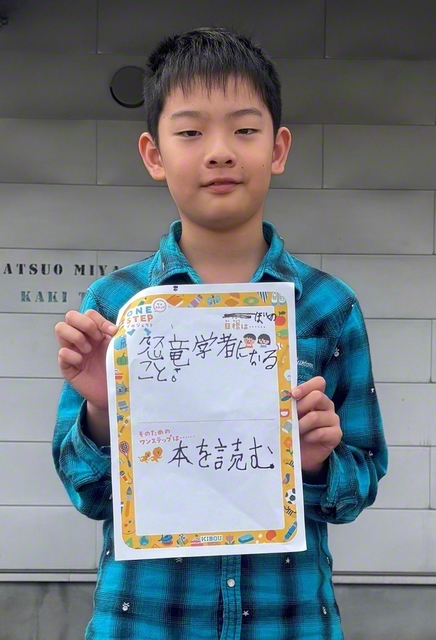 ATSUO MIYA
KAKI T
ONE
STEP
目標は……
恐竜学者になる
こと。
そのための
ワンステップは……
本を読む。
KIBOU